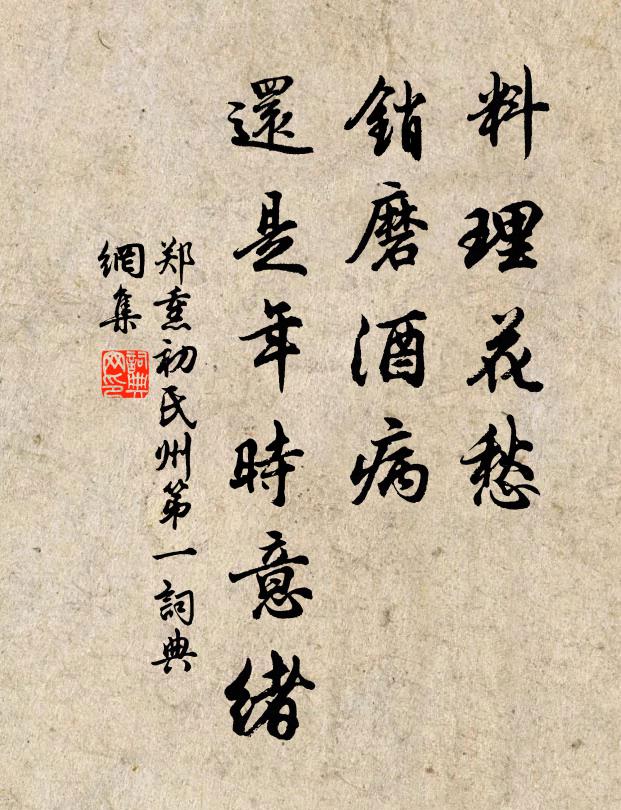 料理花愁
銷磨酒病
還是年時意緒
郑熏初氏州第一詞典
網集
詞典
网印